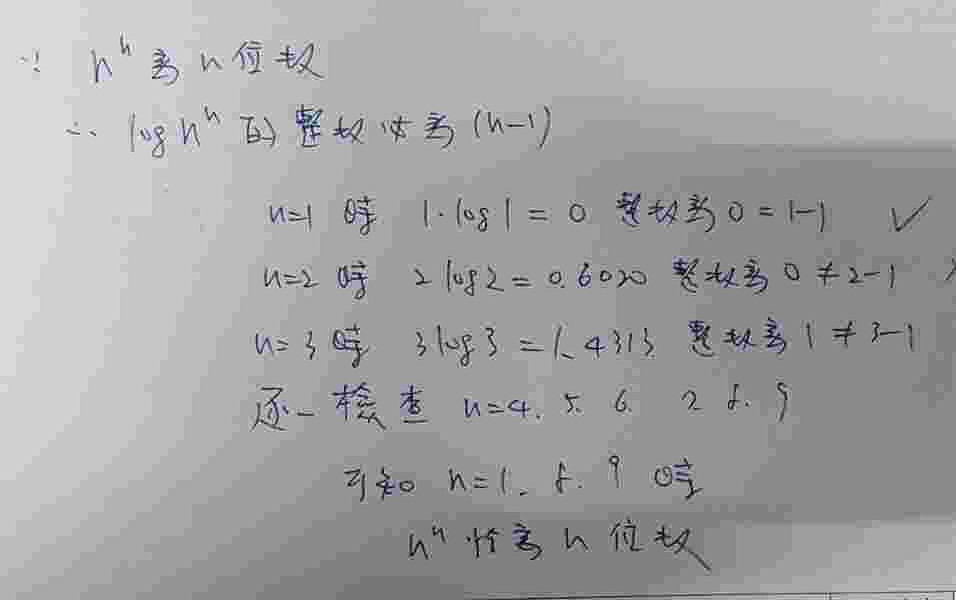 ∵ n^n 為 n 位数
∴ log n^n 的整数必為 (n-1)
n=1 時 1·log1 = 0 整数為 0 = 1-1 ✓
n=2 時 2log2 = 0.6020 整数為 0 ≠ 2-1
n=3 時 3log3 = 1.4313 整数為 1 ≠ 3-1
逐一檢查 n=4. 5. 6. 7 8. 9
可知 n=1. 8. 9 時
n^n 恰為 n 位数